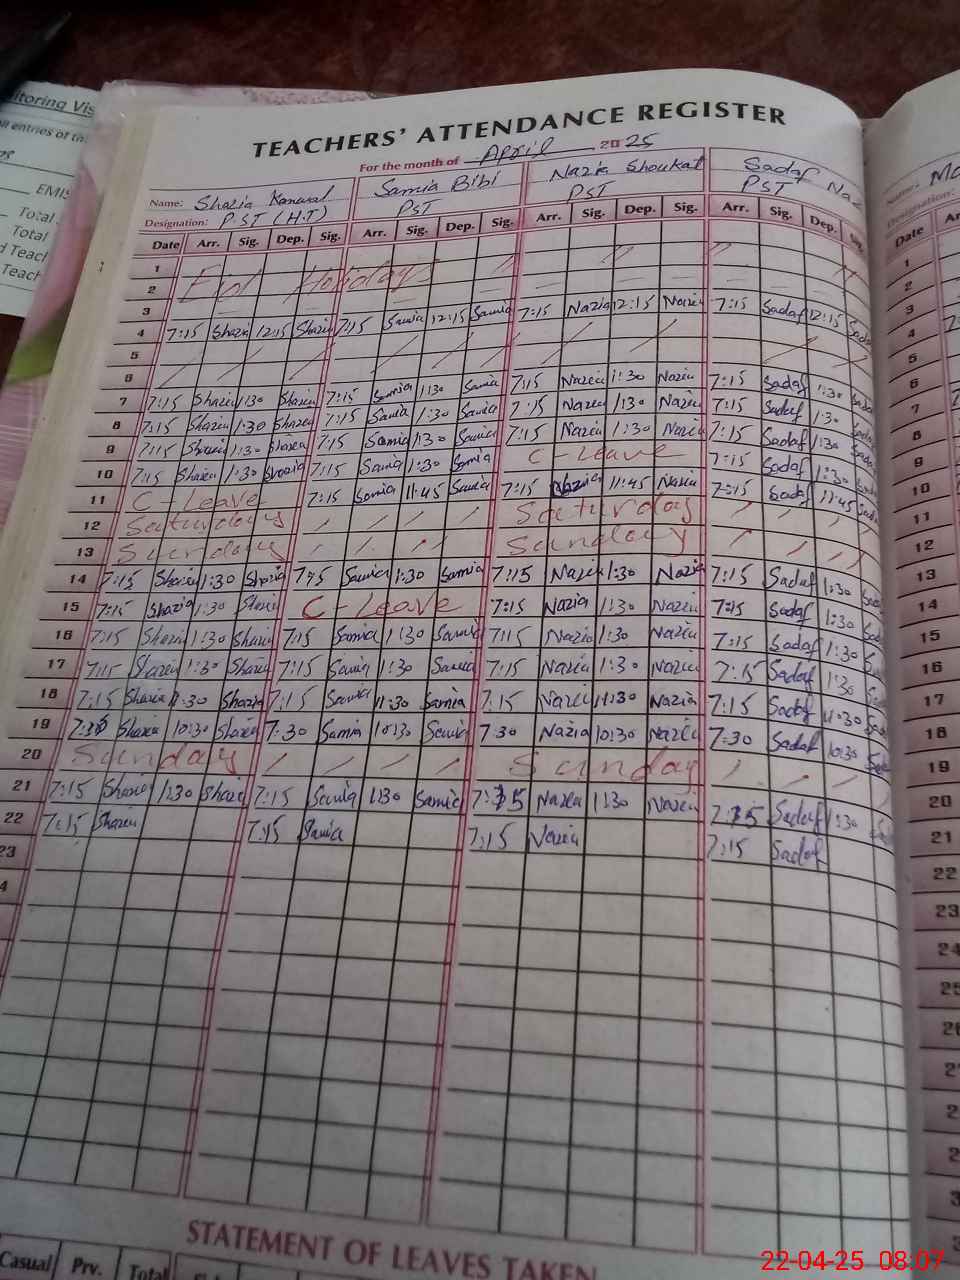 TEACHERS' ATTENDANCE REGISTER
For the month of April 2025
Name: Shazia Kanwal Samia Bibi Nazia Shoukat Sadaf Naz
Designation: PST (H.T) PST PST PST
Date Arr. Sig. Dep. Sig. Arr. Sig. Dep. Sig. Arr. Sig. Dep. Sig. Arr. Sig. Dep. Sig.
1
2 Eid Holidays
3
4 7:15 Shazia 12:15 Shazia 7:15 Samia 12:15 Samia 7:15 Nazia 12:15 Nazia 7:15 Sadaf 12:15 Sadaf
5
6
7 7:15 Shazia 1:30 Shazia 7:15 Samia 1:30 Samia 7:15 Nazia 1:30 Nazia 7:15 Sadaf 1:30 Sadaf
8 7:15 Shazia 1:30 Shazia 7:15 Samia 1:30 Samia 7:15 Nazia 1:30 Nazia 7:15 Sadaf 1:30 Sadaf
9 7:15 Shazia 1:30 Shazia 7:15 Samia 1:30 Samia 7:15 Nazia 1:30 Nazia 7:15 Sadaf 1:30 Sadaf
10 7:15 Shazia 1:30 Shazia 7:15 Samia 1:30 Samia C-Leave 7:15 Sadaf 1:30 Sadaf
11 C-Leave 7:15 Samia 11:45 Samia 7:15 Nazia 11:45 Nazia 7:15 Sadaf 11:45 Sadaf
12 Saturdays Saturday
13 Sunday Sunday
14 7:15 Shazia 1:30 Shazia 7:15 Samia 1:30 Samia 7:15 Nazia 1:30 Nazia 7:15 Sadaf 1:30 Sadaf
15 7:15 Shazia 1:30 Shazia C-Leave 7:15 Nazia 1:30 Nazia 7:15 Sadaf 1:30 Sadaf
16 7:15 Shazia 1:30 Shazia 7:15 Samia 1:30 Samia 7:15 Nazia 1:30 Nazia 7:15 Sadaf 1:30
17 7:15 Shazia 1:30 Shazia 7:15 Samia 1:30 Samia 7:15 Nazia 1:30 Nazia 7:15 Sadaf 1:30
18 7:15 Shazia 11:30 Shazia 7:15 Samia 11:30 Samia 7:15 Nazia 11:30 Nazia 7:15 Sadaf 11:30 Sadaf
19 7:30 Shazia 10:30 Shazia 7:30 Samia 10:30 Samia 7:30 Nazia 10:30 Nazia 7:30 Sadaf 10:30
20 Sunday Sunday
21 7:15 Shazia 1:30 Shazia 7:15 Samia 1:30 Samia 7:15 Nazia 1:30 Nazia 7:15 Sadaf 1:30
22 7:15 Shazia 7:15 Samia 7:15 Nazia 7:15 Sadaf
23
STATEMENT OF LEAVES TAKEN
Casual Prv. Total
itoring Vis
EMIS
Total
Total
Teach
Name: Mo
Designation:
Date
1
2
3
4
5
6
7
8
9
10
11
12
13
14
15
16
17
18
19
20
21
22
23
24
22-04-25 08:07